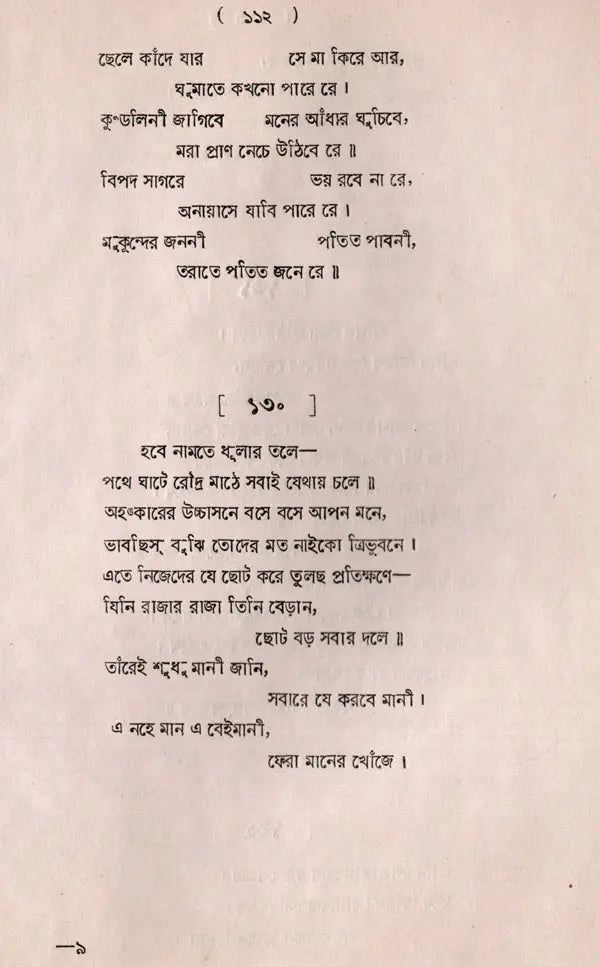 ( ১১২ )
ছেলে কাঁদে যার সে মা কিরে আর,
ঘুমাতে কখনো পারে রে ।
কুণ্ডলিনী জাগিবে মনের আঁধার ঘুচিবে,
মরা প্রাণ নেচে উঠিবে রে ॥
বিপদ সাগরে ভয় রবে না রে,
অনায়াসে যাবি পারে রে ।
মুকুন্দের জননী পতিত পাবনী,
তরাতে পতিত জনে রে ॥
[ ১৩০ ]
হবে নামতে ধূলার তলে—
পথে ঘাটে রৌদ্র মাঠে সবাই যেথায় চলে ॥
অহঙ্কারের উচ্চাসনে বসে বসে আপন মনে,
ভাবছিস্ বুঝি তোদের মত নাইকো ত্রিভুবনে ।
এতে নিজেদের যে ছোট করে তুলছ প্রতিক্ষণে—
যিনি রাজার রাজা তিনি বেড়ান,
ছোট বড় সবার দলে ॥
তাঁরেই শুধু মানী জানি,
সবারে যে করবে মানী ।
এ নহে মান এ বেইমানী,
ফেরা মানের খোঁজে ।
—৯